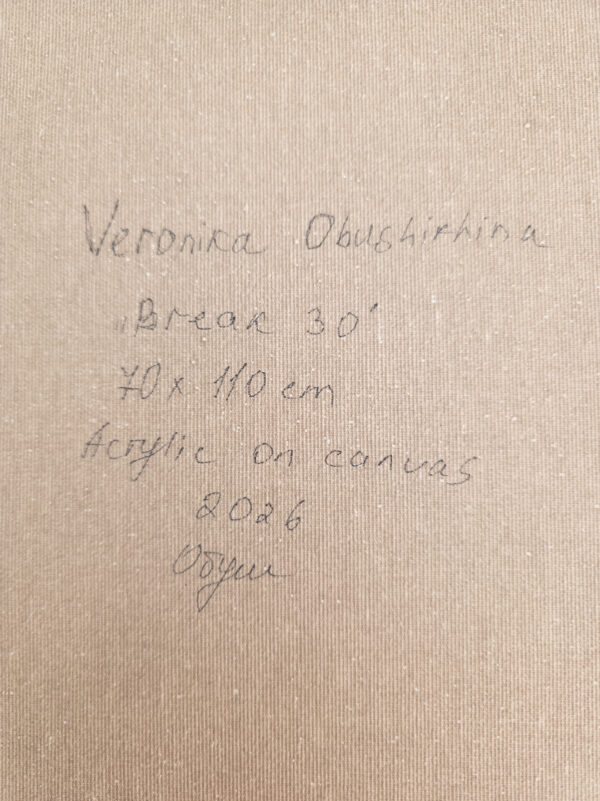 Veronika Obushikhina
„Break 30'
70 x 110 cm
Acrylic on canvas
2026
Обуш